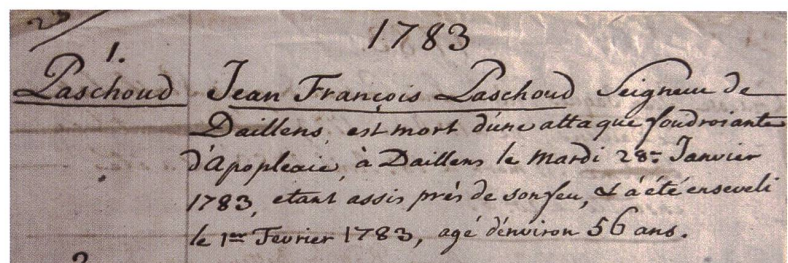 23
1783
1.
Paschoud
Jean François Paschoud Seigneur de
Daillens, est mort d'une attaque foudroiante
d'Apoplexie, à Daillens le Mardi 28e Janvier
1783, etant assis près de son feu, & a été enseveli
le 1er Fevrier 1783, agé d'environ 56 ans.
2